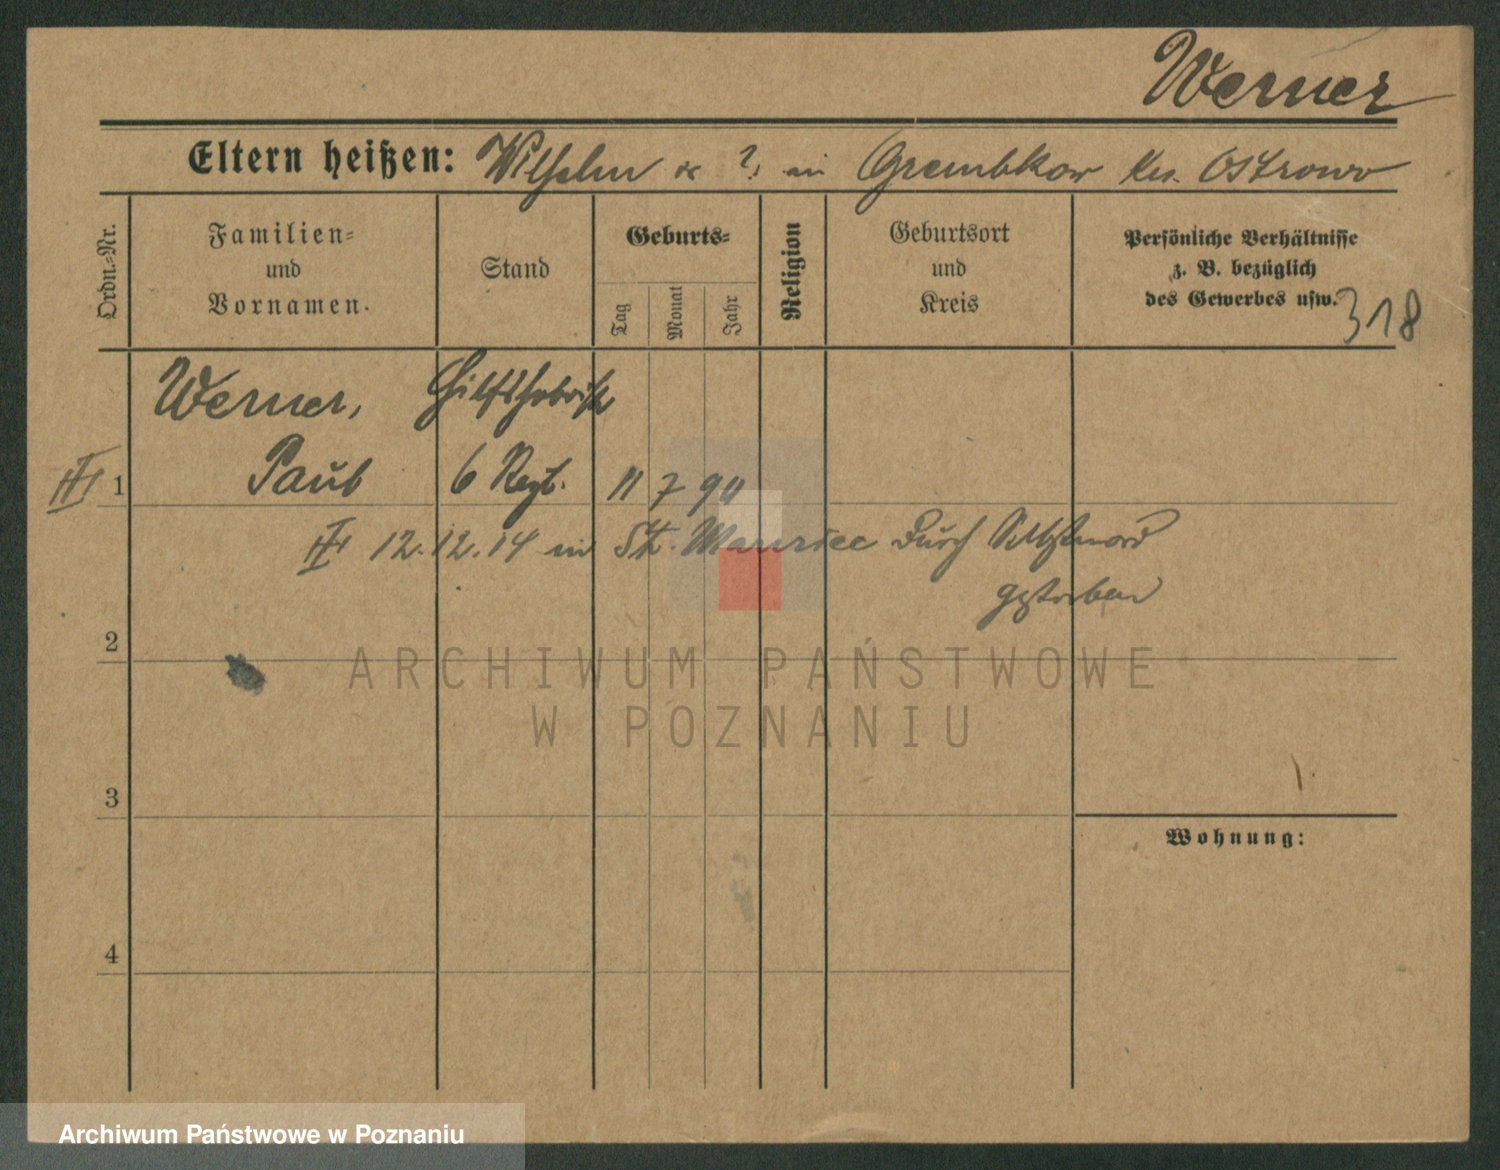 Werner
Eltern heißen: Wilhelm & ?, in Grembkow Krs. Ostrowo
Ordn.-Nr.
Familien-
und
Vornamen.
Stand
Geburts-
Tag
Monat
Jahr
Religion
Geburtsort
und
Kreis
Persönliche Verhältnisse
z. B. bezüglich
des Gewerbes usw.
318
Werner,
1 Paul 6 Regt. 11 7 90
12.12.14 in durch Selbstmord
gestorben
2
ARCHIWUM PAŃSTWOWE
W POZNANIU
3
Wohnung:
4
Archiwum Państwowe w Poznaniu